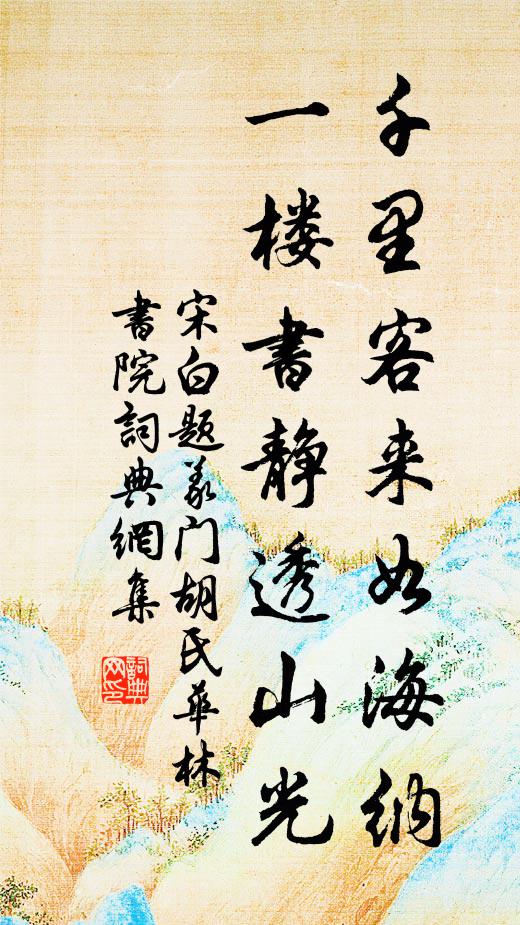 千里客来如海纳
一楼书静透山光
宋白题义门胡氏华林
書院詞典網集
詞典
网印